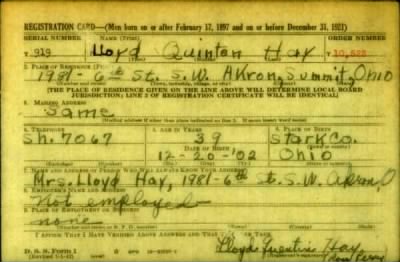 REGISTRATION CARD—(Men born on or after February 17, 1897 and on or before December 31, 1921)
SERIAL NUMBER 1. NAME (Print) ORDER NUMBER
T 919 Lloyd Quinton Hay T 10,528
(First) (Middle) (Last)
2. PLACE OF RESIDENCE (Print)
1981-6th St. S.W. Akron, Summit, Ohio
[THE PLACE OF RESIDENCE GIVEN ON THE LINE ABOVE WILL DETERMINE LOCAL BOARD
JURISDICTION; LINE 2 OF REGISTRATION CERTIFICATE WILL BE IDENTICAL]
3. MAILING ADDRESS
Same
[Mailing address if other than place indicated on line 2. If same insert word same]
4. TELEPHONE 5. AGE IN YEARS 6. PLACE OF BIRTH
Sh. 7067 39 Stark Co.
DATE OF BIRTH
12-20-'02 Ohio
7. NAME AND ADDRESS OF PERSON WHO WILL ALWAYS KNOW YOUR ADDRESS
Mrs. Lloyd Hay, 1981-6th St. S.W. Akron, O
8. EMPLOYER'S NAME AND ADDRESS
Not employed
9. PLACE OF EMPLOYMENT OR BUSINESS
none
I AFFIRM THAT I HAVE VERIFIED ABOVE ANSWERS AND THAT THEY ARE TRUE.
D. S. S. Form 1
Lloyd Hay